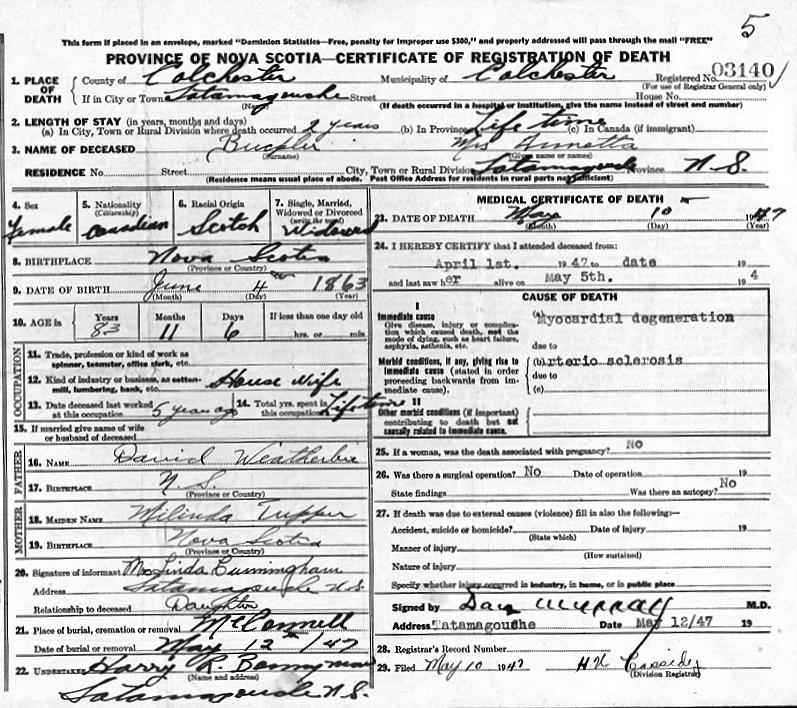 5
This form if placed in an envelope, marked "Dominion Statistics—Free, penalty for improper use $300," and properly addressed will pass through the mail "FREE"
PROVINCE OF NOVA SCOTIA—CERTIFICATE OF REGISTRATION OF DEATH
1. PLACE OF DEATH County of Colchester Municipality of Colchester Registered No. 03140
(For use of Registrar General only)
If in City or Town Tatamagouche Street House No.
(Name) (If death occurred in a hospital or institution, give the name instead of street and number)
2. LENGTH OF STAY (in years, months and days)
(a) In City, Town or Rural Division where death occurred 2 years (b) In Province Life time (c) In Canada (if immigrant)
3. NAME OF DECEASED Buckler Mrs Annetta
(Surname) (Given name or names)
RESIDENCE No. Street City, Town or Rural Division Tatamagouche Province N.S.
(Residence means usual place of abode. Post Office Address for residents in rural parts not sufficient)
4. Sex Female
5. Nationality (Citizenship) Canadian
6. Racial Origin Scotch
7. Single, Married, Widowed or Divorced (write the word) Widowed
8. BIRTHPLACE Nova Scotia
(Province or Country)
9. DATE OF BIRTH June 4 1863
(Month) (Day) (Year)
10. AGE in Years Months Days If less than one day old
83 11 6 hrs. or min.
OCCUPATION
11. Trade, profession or kind of work as spinner, teamster, office clerk, etc.
12. Kind of industry or business, as cotton-mill, lumbering, bank, etc. House Wife
13. Date deceased last worked at this occupation 5 years ago
14. Total yrs. spent in this occupation Lifetime
15. If married give name of wife or husband of deceased
FATHER
16. NAME David Weatherbie
17. BIRTHPLACE N.S.
(Province or Country)
MOTHER
18. MAIDEN NAME Milinda Tupper
19. BIRTHPLACE Nova Scotia
(Province or Country)
20. Signature of informant Mrs Linda Cunningham
Address Tatamagouche N.S.
Relationship to deceased Daughter
21. Place of burial, cremation or removal McConnell
Date of burial or removal May 12th/47
22. UNDERTAKER Harry R. Bonnyman
(Name and address)
Tatamagouche N.S.
MEDICAL CERTIFICATE OF DEATH
23. DATE OF DEATH May 10 1947
(Month) (Day) (Year)
24. I HEREBY CERTIFY that I attended deceased from:
April 1st. 1947 to date 19
and last saw her alive on May 5th. 194
CAUSE OF DEATH
I
Immediate cause
Give disease, injury or complication which caused death, not the mode of dying, such as heart failure, asphyxia, asthenia, etc.
(a) Myocardial degeneration
due to
Morbid conditions, if any, giving rise to immediate cause (stated in order proceeding backwards from immediate cause).
(b) rterio sclerosis
due to
(c)
II
Other morbid conditions (if important) contributing to death but not causally related to immediate cause.
25. If a woman, was the death associated with pregnancy? No
26. Was there a surgical operation? No Date of operation 19
State findings Was there an autopsy? No
27. If death was due to external causes (violence) fill in also the following:—
Accident, suicide or homicide? Date of injury 19
(State which)
Manner of injury
(How sustained)
Nature of injury
Specify whether injury occurred in industry, in home, or in public place
Signed by Dan Murray M.D.
Address Tatamagouche Date May 12/47 19
28. Registrar's Record Number
29. Filed May 10 1947 H N Cassidy
(Division Registrar)